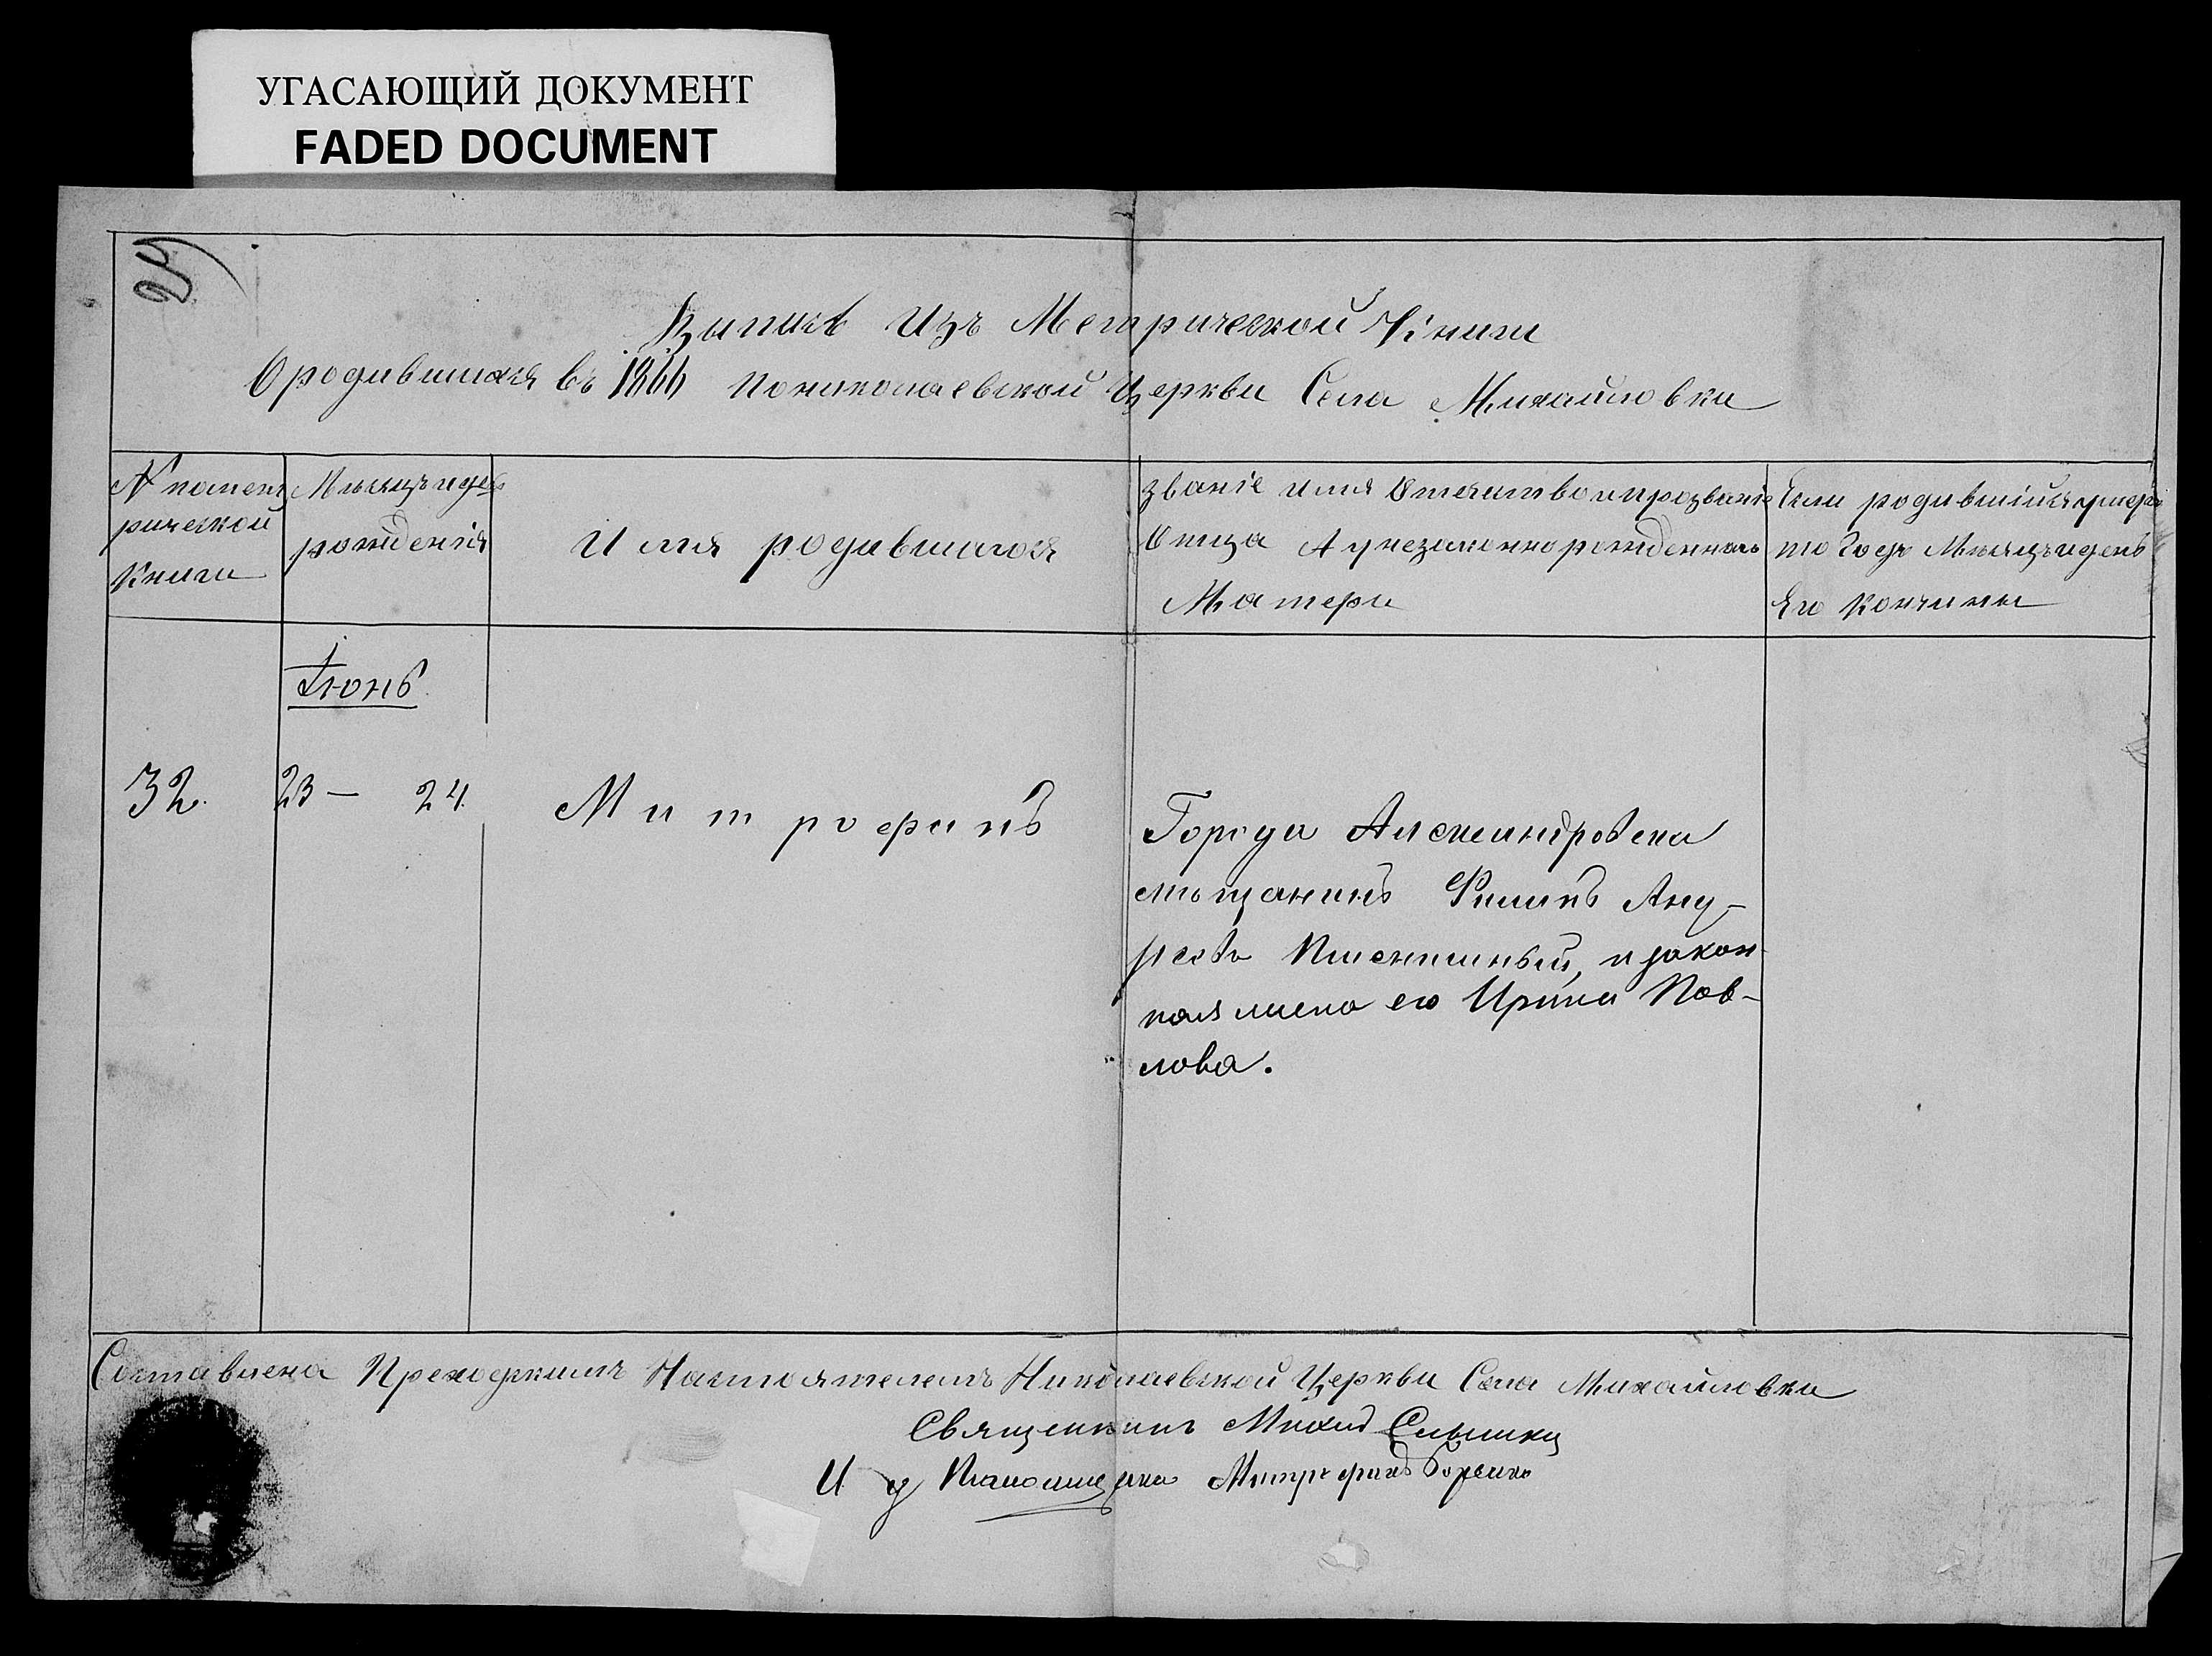 УГАСАЮЩИЙ ДОКУМЕНТ
FADED DOCUMENT
25)
Выпись Изъ Метрической Книги
О родившихся въ 1866 Пониколаевской Церкви Села Михайловки
№ помет
рической
Книги
Мѣсяцъ и день
рожденія
Имя родившагося
Званіе имя Отечество и прозваніе
Отца А у незаконнорожденнаго
Матери
Если родившійся умеръ
то Годъ Мѣсяцъ и день
Его Кончины
Іюнь
32. 23 — 24. Митрофанъ
Города Александровска
мѣщанинъ Филипъ Анд-
реевъ Пшеничный, и закон-
ная жена его Ирина Пав-
лова.
Составлена Приходскимъ Настоятелемъ Николаевской Церкви Села Михайловки
Священникъ Михаил
И д Псаломщика Митрофанъ